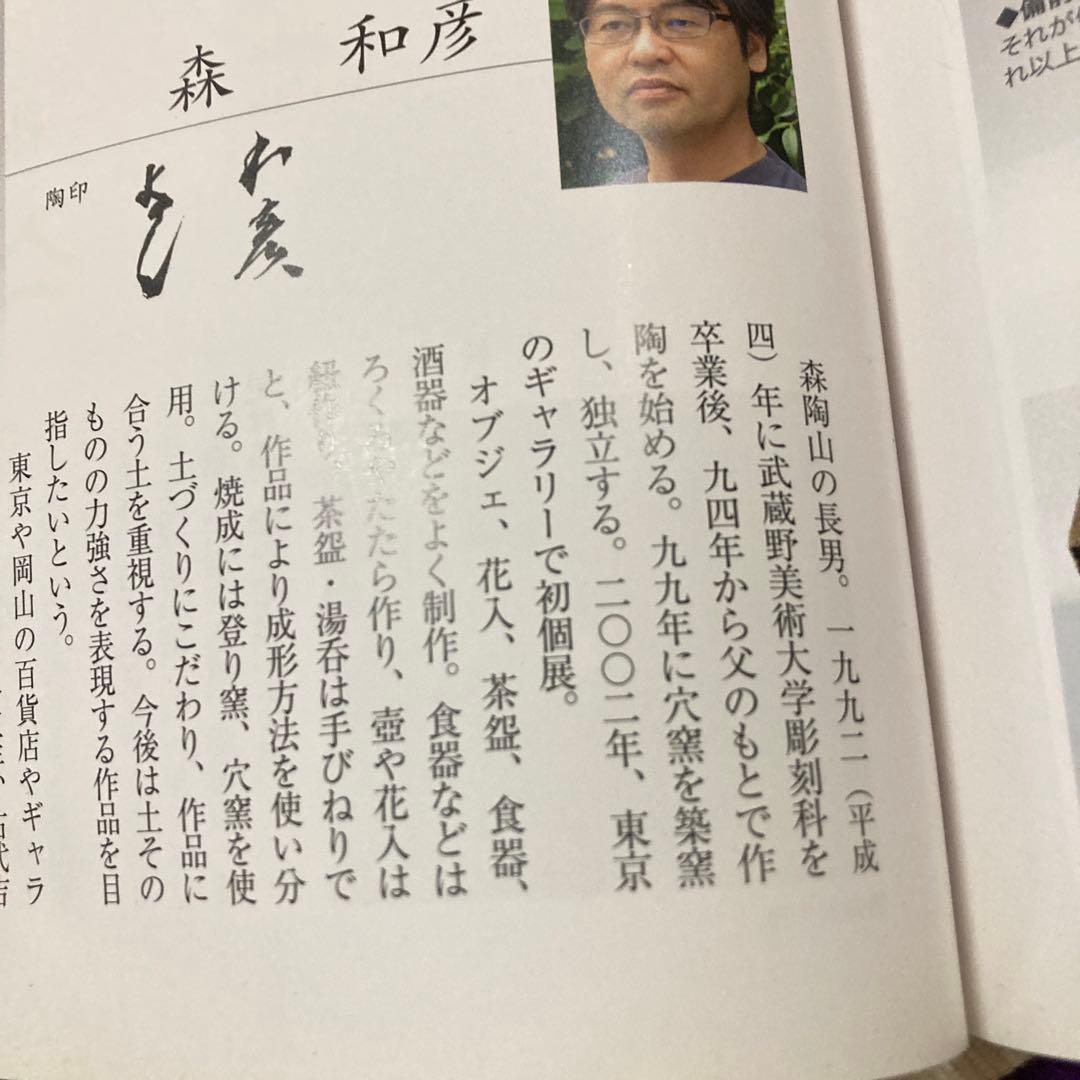 森 和彦
陶印
森陶山の長男。一九九二（平成
四）年に武蔵野美術大学彫刻科を
卒業後、九四年から父のもとで作
陶を始める。九九年に穴窯を築窯
し、独立する。二〇〇二年、東京
のギャラリーで初個展。
オブジェ、花入、茶盌、食器、
酒器などをよく制作。食器などは
ろくろやたたら作り、壺や花入は
紐作り、茶盌・湯呑は手びねりで
と、作品により成形方法を使い分
ける。焼成には登り窯、穴窯を使
用。土づくりにこだわり、作品に
合う土を重視する。今後は土その
ものの力強さを表現する作品を目
指したいという。
東京や岡山の百貨店やギャラ
◆備前
それが
れ以上